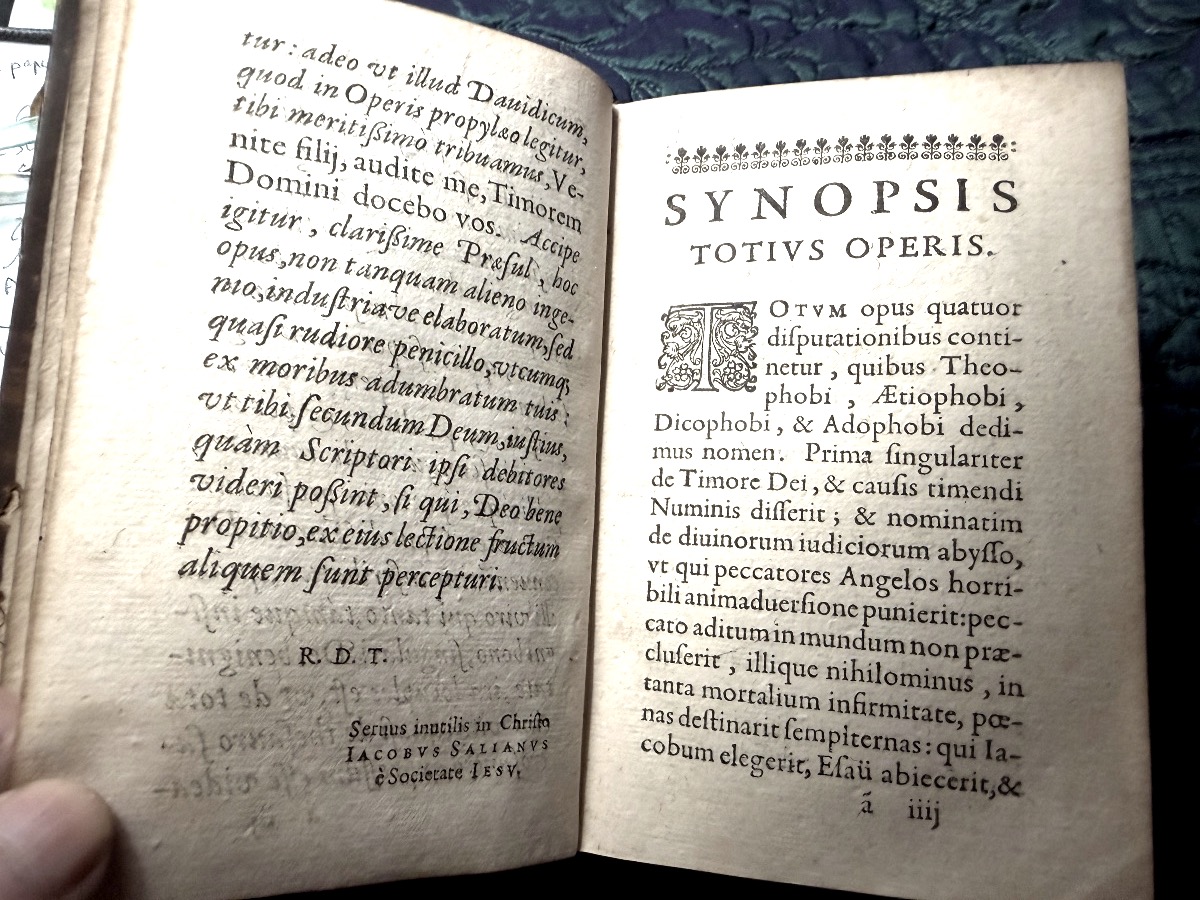 tur: adeo vt illud Dauidicum,
quod in Operis propylæo legitur,
tibi meritißimò tribuamus, Ve-
nite filij, audite me, Timorem
Domini docebo vos. Accipe
igitur, clarißime Præsul, hoc
opus, non tanquam alieno inge-
nio, industriave elaboratum, sed
quasi rudiore penicillo, vtcumq;
ex moribus adumbratum tuis:
vt tibi, secundum Deum, iustius,
quàm Scriptori ipsi debitores
videri poßint, si qui, Deo bene
propitio, ex eius lectione fructum
aliquem sunt percepturi.
R. D. T.
Seruus inutilis in Christo
IACOBVS SALIANVS
è Societate IESV.
SYNOPSIS
TOTIVS OPERIS.
TOTVM opus quatuor
disputationibus conti-
netur, quibus Theo-
phobi, Ætiophobi,
Dicophobi, & Adophobi dedi-
mus nomen. Prima singulariter
de Timore Dei, & causis timendi
Numinis disserit; & nominatim
de diuinorum iudiciorum abysso,
vt qui peccatores Angelos horri-
bili animaduersione punierit: pec-
cato aditum in mundum non præ-
cluserit, illique nihilominus, in
tanta mortalium infirmitate, pœ-
nas destinarit sempiternas: qui Ia-
cobum elegerit, Esaü abiecerit, &
ã iiij